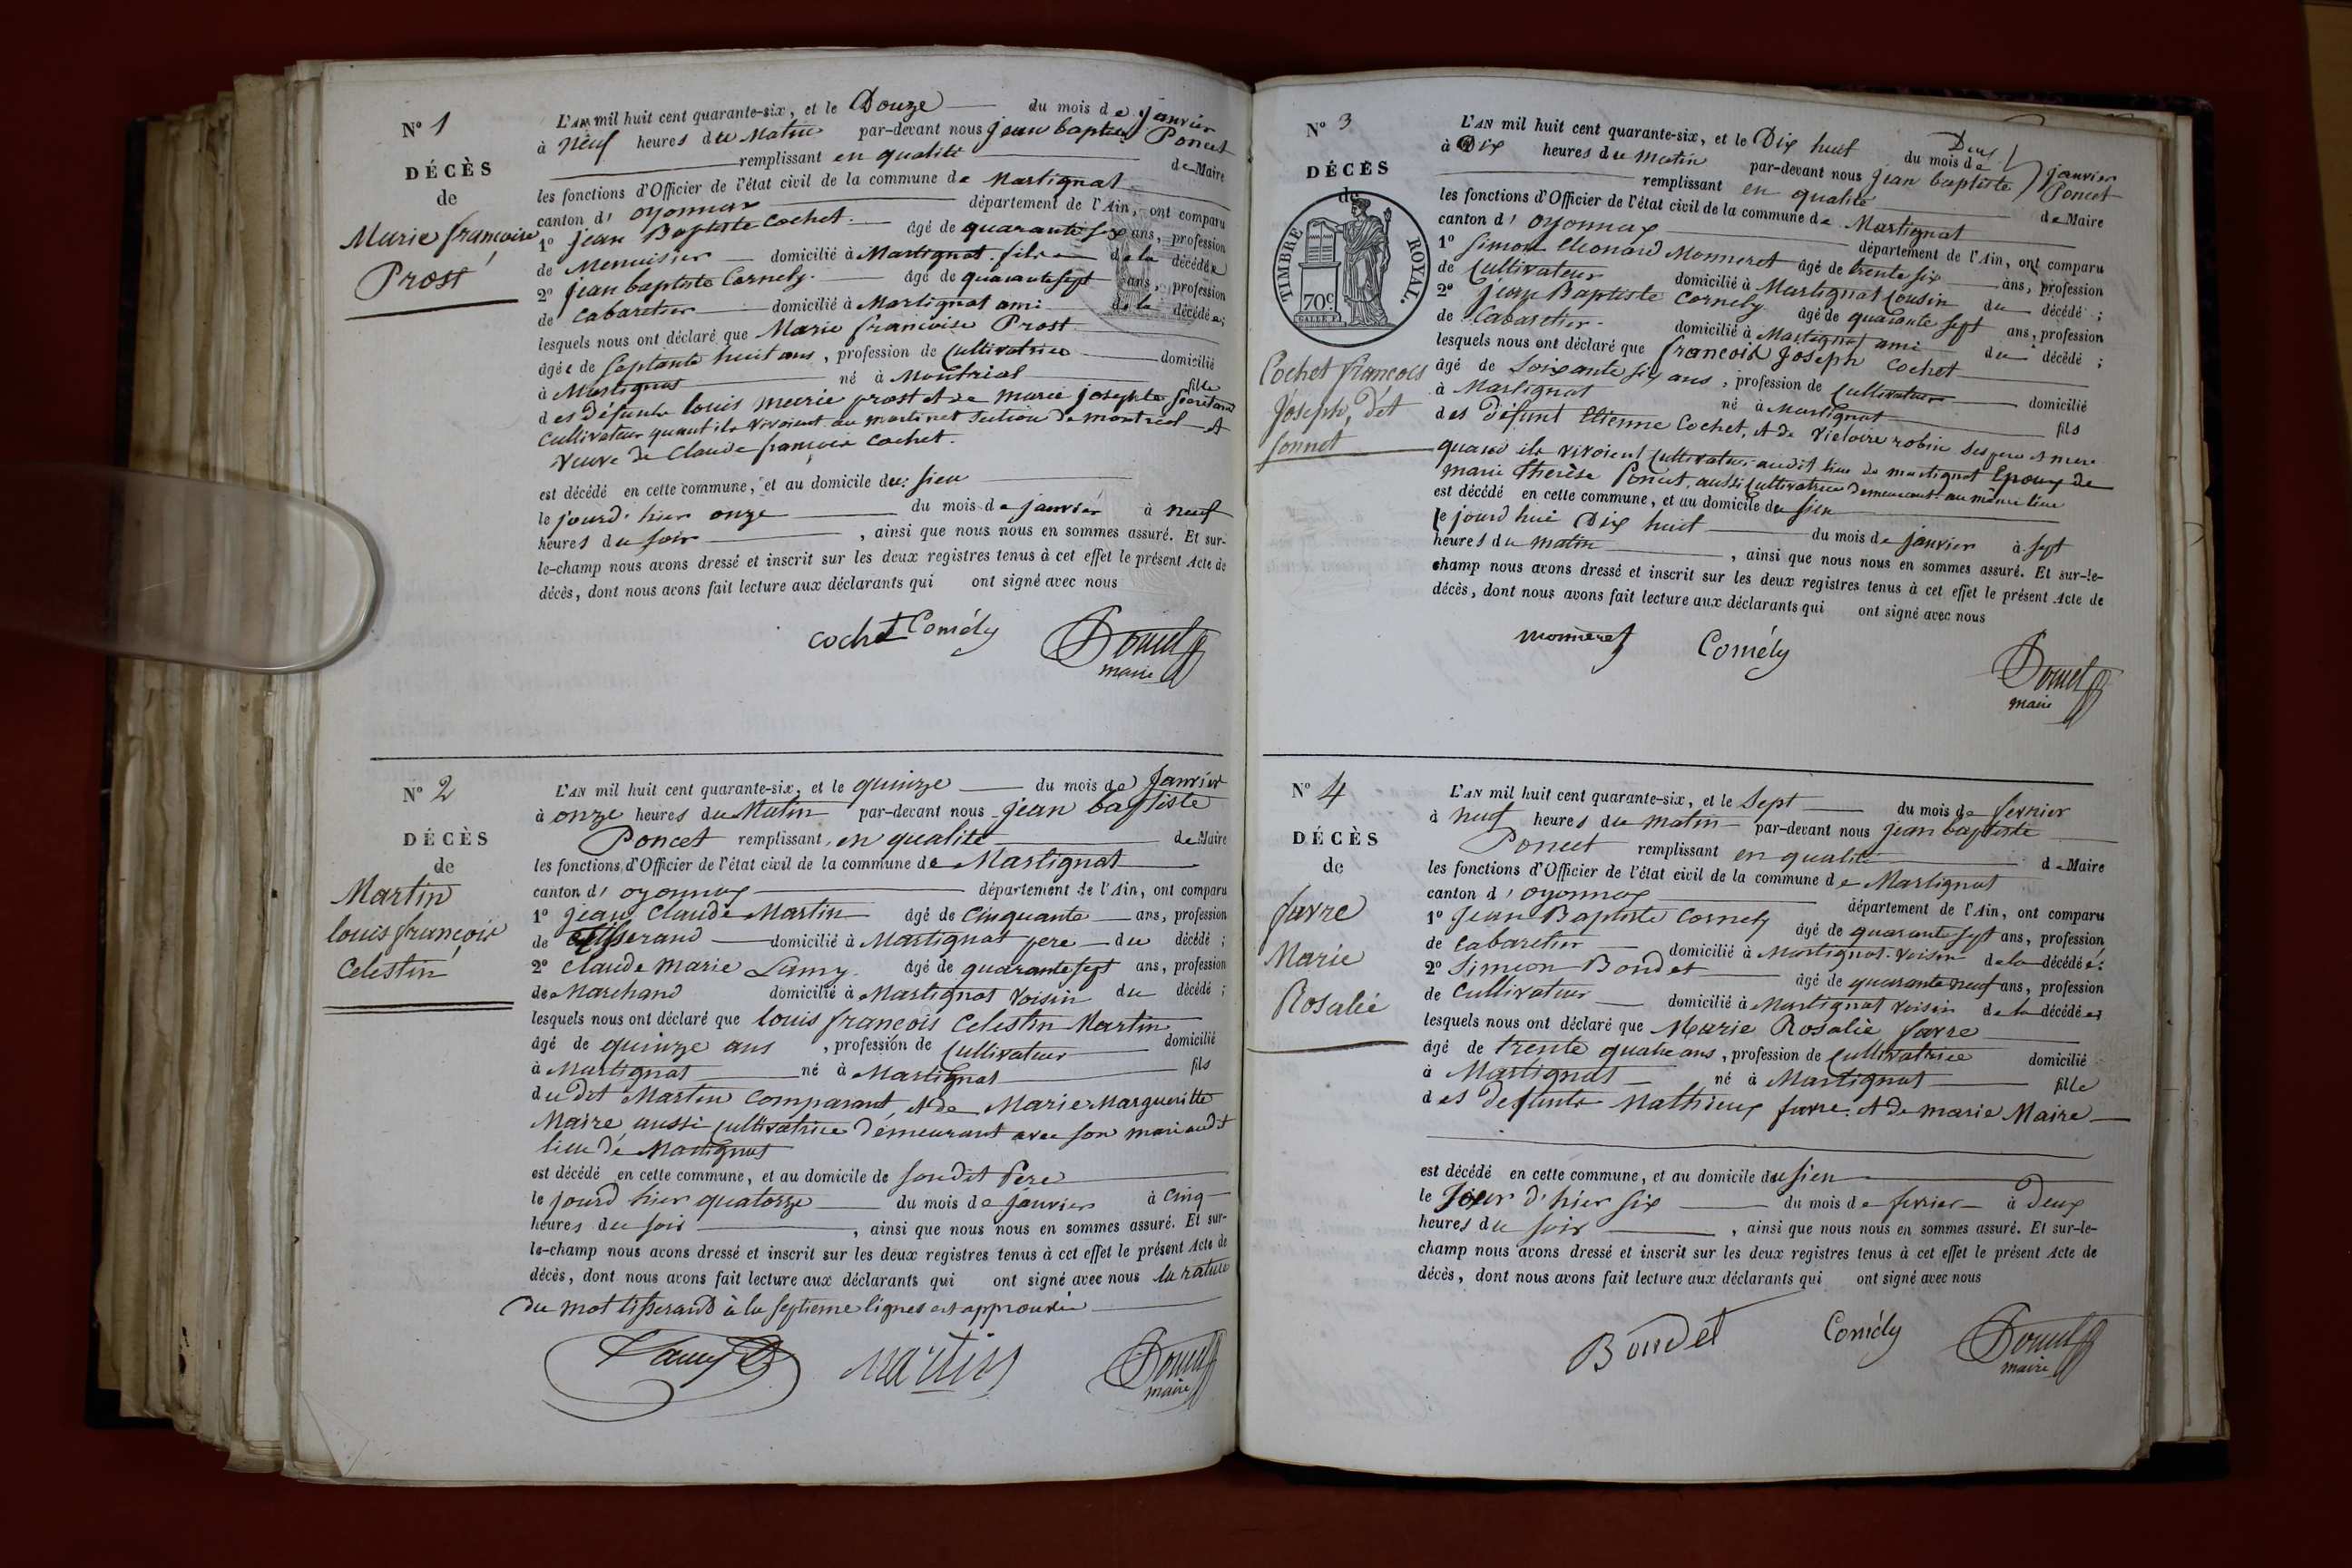 N° 1
DÉCÈS
de
Marie françoise
Prost
L'AN mil huit cent quarante-six, et le Douze du mois de janvier
à neuf heures du Matin par-devant nous jean baptiste Poncet
remplissant en qualité de Maire
les fonctions d'Officier de l'état civil de la commune de Martignat
canton d' oyonnax département de l'Ain, ont comparu
1° jean Baptiste Cochet âgé de quarante six ans, profession
de Menuisier domicilié à Martignat fils de la décédée
2° jean baptiste Cornely âgé de quarante sept ans, profession
de Cabaretier domicilié à Martignat ami de la décédée;
lesquels nous ont déclaré que Marie francoise Prost
âgée de septante huit ans, profession de Cultivatrice domicilié
à Martignat né à Montréal fille
des défunts louis marie prost et de marie josephte secretant
Cultivateur quant ils vivoient au martinet section de montréal et
veuve de Claude françois Cochet.
est décédé en cette commune, et au domicile du sien
le jourd'hier onze du mois de janvier à neuf
heures du soir, ainsi que nous nous en sommes assuré. Et sur-
le-champ nous avons dressé et inscrit sur les deux registres tenus à cet effet le présent Acte de
décès, dont nous avons fait lecture aux déclarants qui ont signé avec nous
cochet Cornély Poncet
maire
N° 2
DÉCÈS
de
Martin
louis françois
Celestin
L'AN mil huit cent quarante-six, et le quinze du mois de Janvier
à onze heures du Matin par-devant nous jean baptiste
Poncet remplissant en qualité de Maire
les fonctions d'Officier de l'état civil de la commune de Martignat
canton d' oyonnax département de l'Ain, ont comparu
1° jean Claude Martin âgé de Cinquante ans, profession
de tisserand domicilié à Martignat pere du décédé;
2° Claude Marie Lamy âgé de quarante sept ans, profession
de Marchand domicilié à Martignat voisin du décédé;
lesquels nous ont déclaré que louis francois Celestin Martin
âgé de quinze ans, profession de Cultivateur domicilié
à Martignat né à Martignat fils
du dit Martin comparant, et de Marie Margueritte
Maire aussi Cultivatrice demeurant avec son mari audit
lieu de Martignat
est décédé en cette commune, et au domicile de son dit Pere
le jourd hier quatorze du mois de janvier à Cinq
heures du soir, ainsi que nous nous en sommes assuré. Et sur-
le-champ nous avons dressé et inscrit sur les deux registres tenus à cet effet le présent Acte de
décès, dont nous avons fait lecture aux déclarants qui ont signé avec nous la rature
du mot tisserand à la septieme lignes est approuvée
Lamy Martin Poncet
maire
N° 3
DÉCÈS
de
TIMBRE ROYAL.
70c
Cochet francois
Joseph, dit
sonnet
L'AN mil huit cent quarante-six, et le Dix huit du mois de janvier
à Dix heures du matin par-devant nous jean baptiste Poncet
remplissant en qualité de Maire
les fonctions d'Officier de l'état civil de la commune de Martignat
canton d' oyonnax département de l'Ain, ont comparu
1° Simon Léonard Monneret âgé de trente six ans, profession
de Cultivateur domicilié à Martignat Cousin du décédé;
2° jean Baptiste Cornely âgé de quarante sept ans, profession
de Cabaretier domicilié à Martignat ami du décédé;
lesquels nous ont déclaré que françois Joseph Cochet
âgé de soixante six ans, profession de Cultivateur domicilié
à Martignat né à Martignat fils
des défunt Etienne Cochet, et de victoire robin ses pere et mere
quand ils vivoient Cultivateur audit lieu de martignat Epoux de
marie thérèse Poncet, aussi Cultivatrice demeurant au même lieu
est décédé en cette commune, et au domicile du sien
le jourd hui Dix huit du mois de janvier à sept
heures du matin, ainsi que nous nous en sommes assuré. Et sur-le-
champ nous avons dressé et inscrit sur les deux registres tenus à cet effet le présent Acte de
décès, dont nous avons fait lecture aux déclarants qui ont signé avec nous
monneret Cornély Poncet
maire
N° 4
DÉCÈS
de
favre
Marie
Rosalie
L'AN mil huit cent quarante-six, et le Sept du mois de fevrier
à neuf heures du matin par-devant nous jean baptiste
Poncet remplissant en qualité de Maire
les fonctions d'Officier de l'état civil de la commune de Martignat
canton d' oyonnax département de l'Ain, ont comparu
1° Jean Baptiste Cornely âgé de quarante sept ans, profession
de Cabaretier domicilié à Martignat voisin de la décédée;
2° Simeon Bondet âgé de quarante neuf ans, profession
de Cultivateur domicilié à Martignat voisin de la décédée;
lesquels nous ont déclaré que Marie Rosalie favre
âgé de trente quatre ans, profession de Cultivatrice domicilié
à Martignat né à Martignat fille
des défunts Mathieux favre et de marie Maire
est décédé en cette commune, et au domicile du sien
le jour d'hier six du mois de fevrier à Deux
heures du soir, ainsi que nous nous en sommes assuré. Et sur-le-
champ nous avons dressé et inscrit sur les deux registres tenus à cet effet le présent Acte de
décès, dont nous avons fait lecture aux déclarants qui ont signé avec nous
Bondet Cornély Poncet
maire